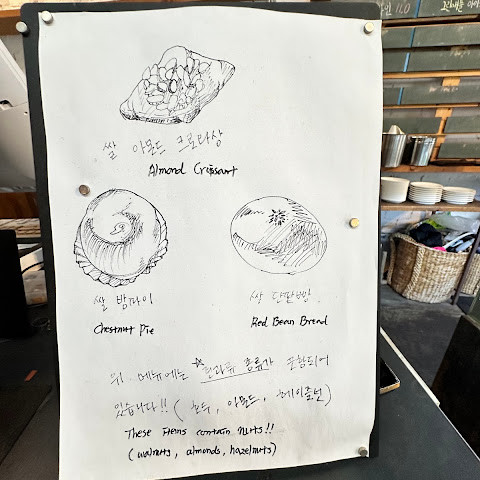 쌀 아몬드 크로와상
Almond Croissant
쌀 밤파이
Chestnut Pie
쌀 단팥빵
Red Bean Bread
위 메뉴에는 ☆견과류 종류가 포함되어
있습니다!! (호두, 아몬드, 헤이즐넛)
These items contain nuts!!
(walnuts, almonds, hazelnuts)